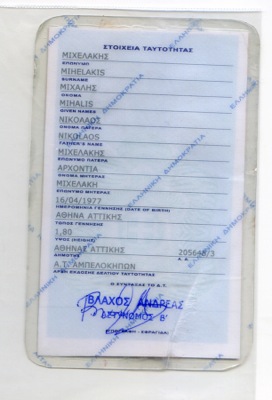 ΣΤΟΙΧΕΙΑ ΤΑΥΤΟΤΗΤΑΣ
ΜΙΧΕΛΑΚΗΣ
ΕΠΩΝΥΜΟ
MIHELAKIS
SURNAME
ΜΙΧΑΛΗΣ
ΟΝΟΜΑ
MIHALIS
GIVEN NAMES
ΝΙΚΟΛΑΟΣ
ΟΝΟΜΑ ΠΑΤΕΡΑ
NIKOLAOS
FATHER'S NAME
ΜΙΧΕΛΑΚΗΣ
ΕΠΩΝΥΜΟ ΠΑΤΕΡΑ
ΑΡΧΟΝΤΙΑ
ΟΝΟΜΑ ΜΗΤΕΡΑΣ
ΜΙΧΕΛΑΚΗ
ΕΠΩΝΥΜΟ ΜΗΤΕΡΑΣ
16/04/1977
ΗΜΕΡΟΜΗΝΙΑ ΓΕΝΝΗΣΗΣ (DATE OF BIRTH)
ΑΘΗΝΑ ΑΤΤΙΚΗΣ
ΤΟΠΟΣ ΓΕΝΝΗΣΗΣ
1,80
ΥΨΟΣ (HEIGHT)
ΑΘΗΝΑΣ ΑΤΤΙΚΗΣ 205648/3
ΔΗΜΟΤΗΣ Α.Α.
Α.Τ. ΑΜΠΕΛΟΚΗΠΩΝ
ΑΡΧΗ ΕΚΔΟΣΗΣ ΔΕΛΤΙΟΥ ΤΑΥΤΟΤΗΤΑΣ
Ο ΣΥΝΤΑΞΑΣ ΤΟ Δ.Τ.
ΒΛΑΧΟΣ ΑΝΔΡΕΑΣ
ΑΣΤΥΝΟΜΟΣ Β'
ΥΠΟΓΡΑΦΗ - ΣΦΡΑΓΙΔΑ
ΕΛΛΗΝΙΚΗ ΔΗΜΟΚΡΑΤΙΑ